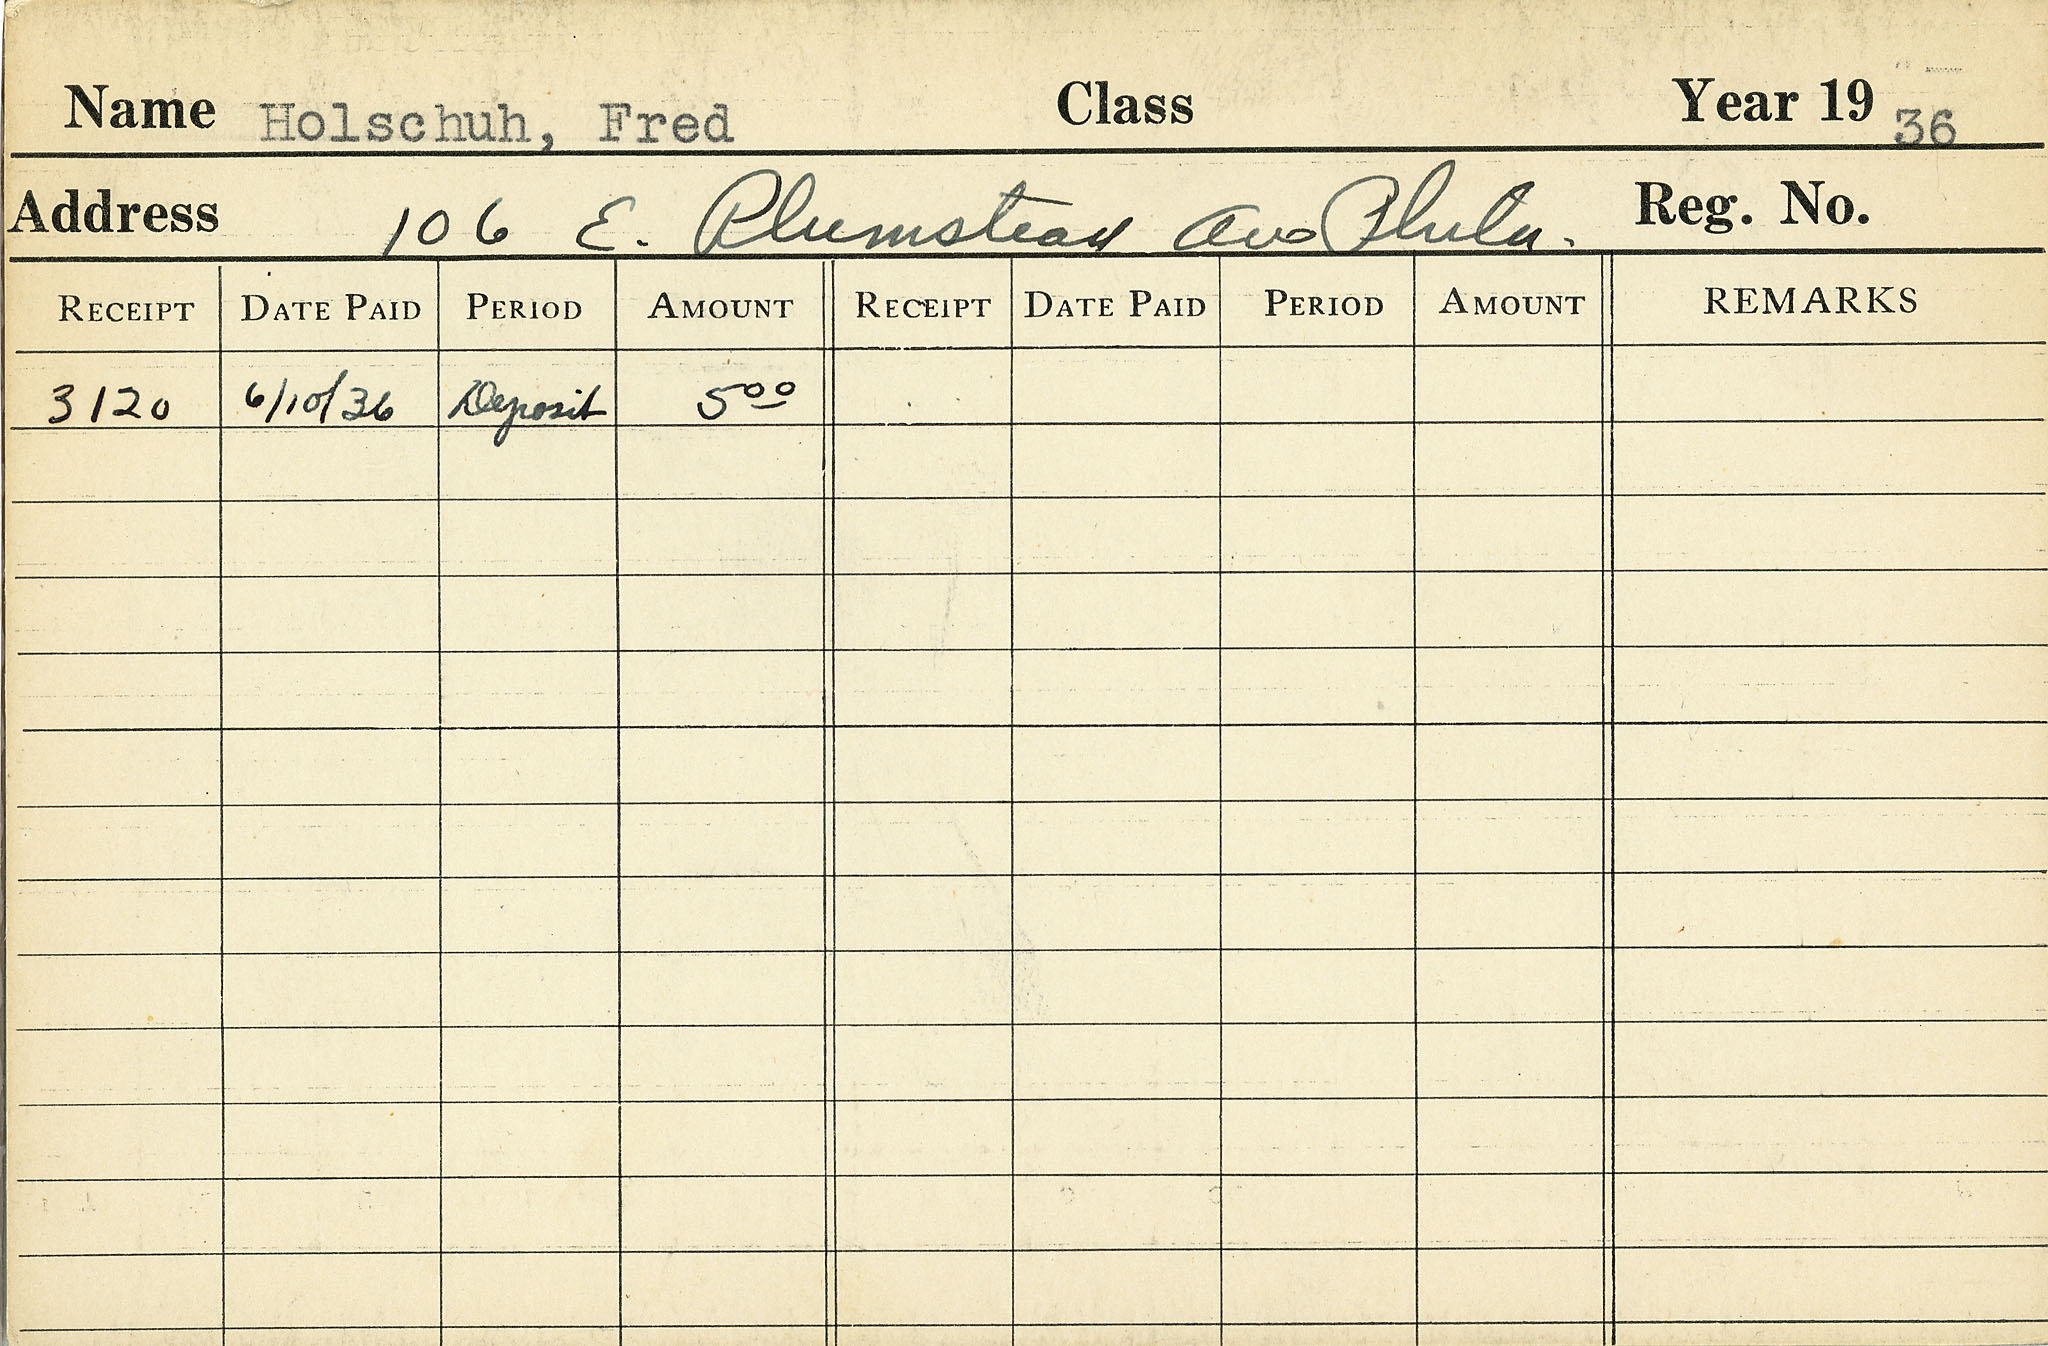 Name Holschuh, Fred Class Year 19 36
Address 106 E. Plumstead Ave Phila. Reg. No.
RECEIPT DATE PAID PERIOD AMOUNT RECEIPT DATE PAID PERIOD AMOUNT REMARKS
3120 6/10/36 Deposit 5 00